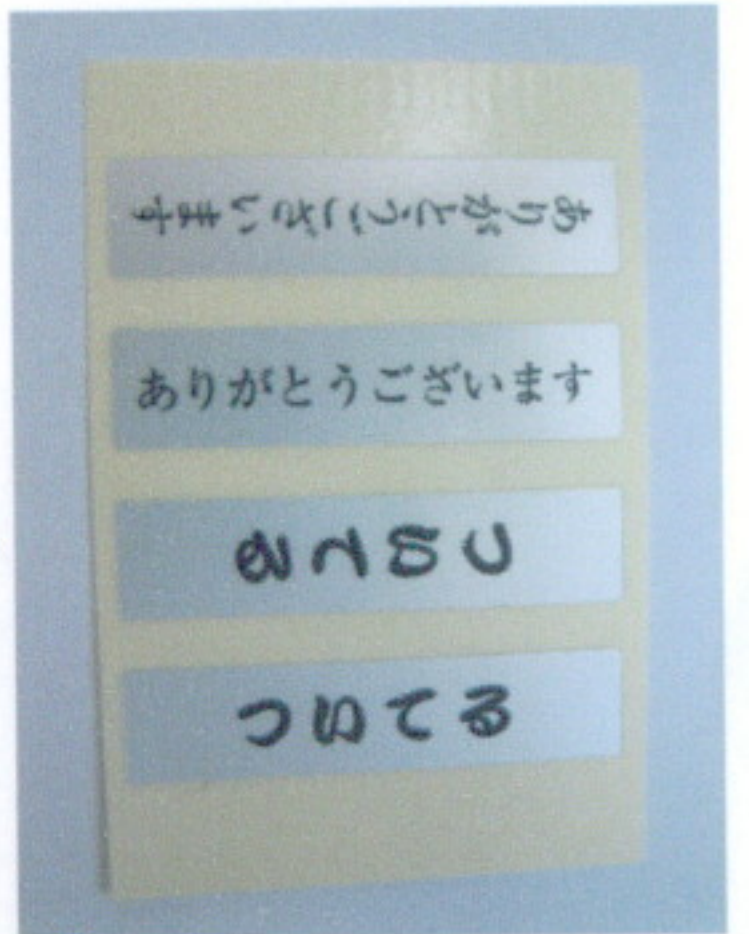 ありがとうございます
ありがとうございます
ついてる
ついてる